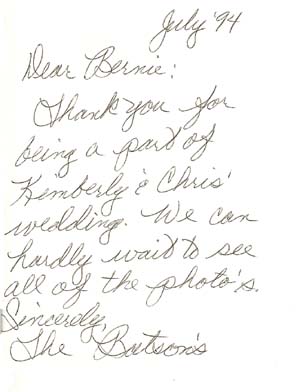 July '94
Dear Bernie:
Thank you for
being a part of
Kimberly & Chris'
wedding. We can
hardly wait to see
all of the photo's.
Sincerely,
The Batson's